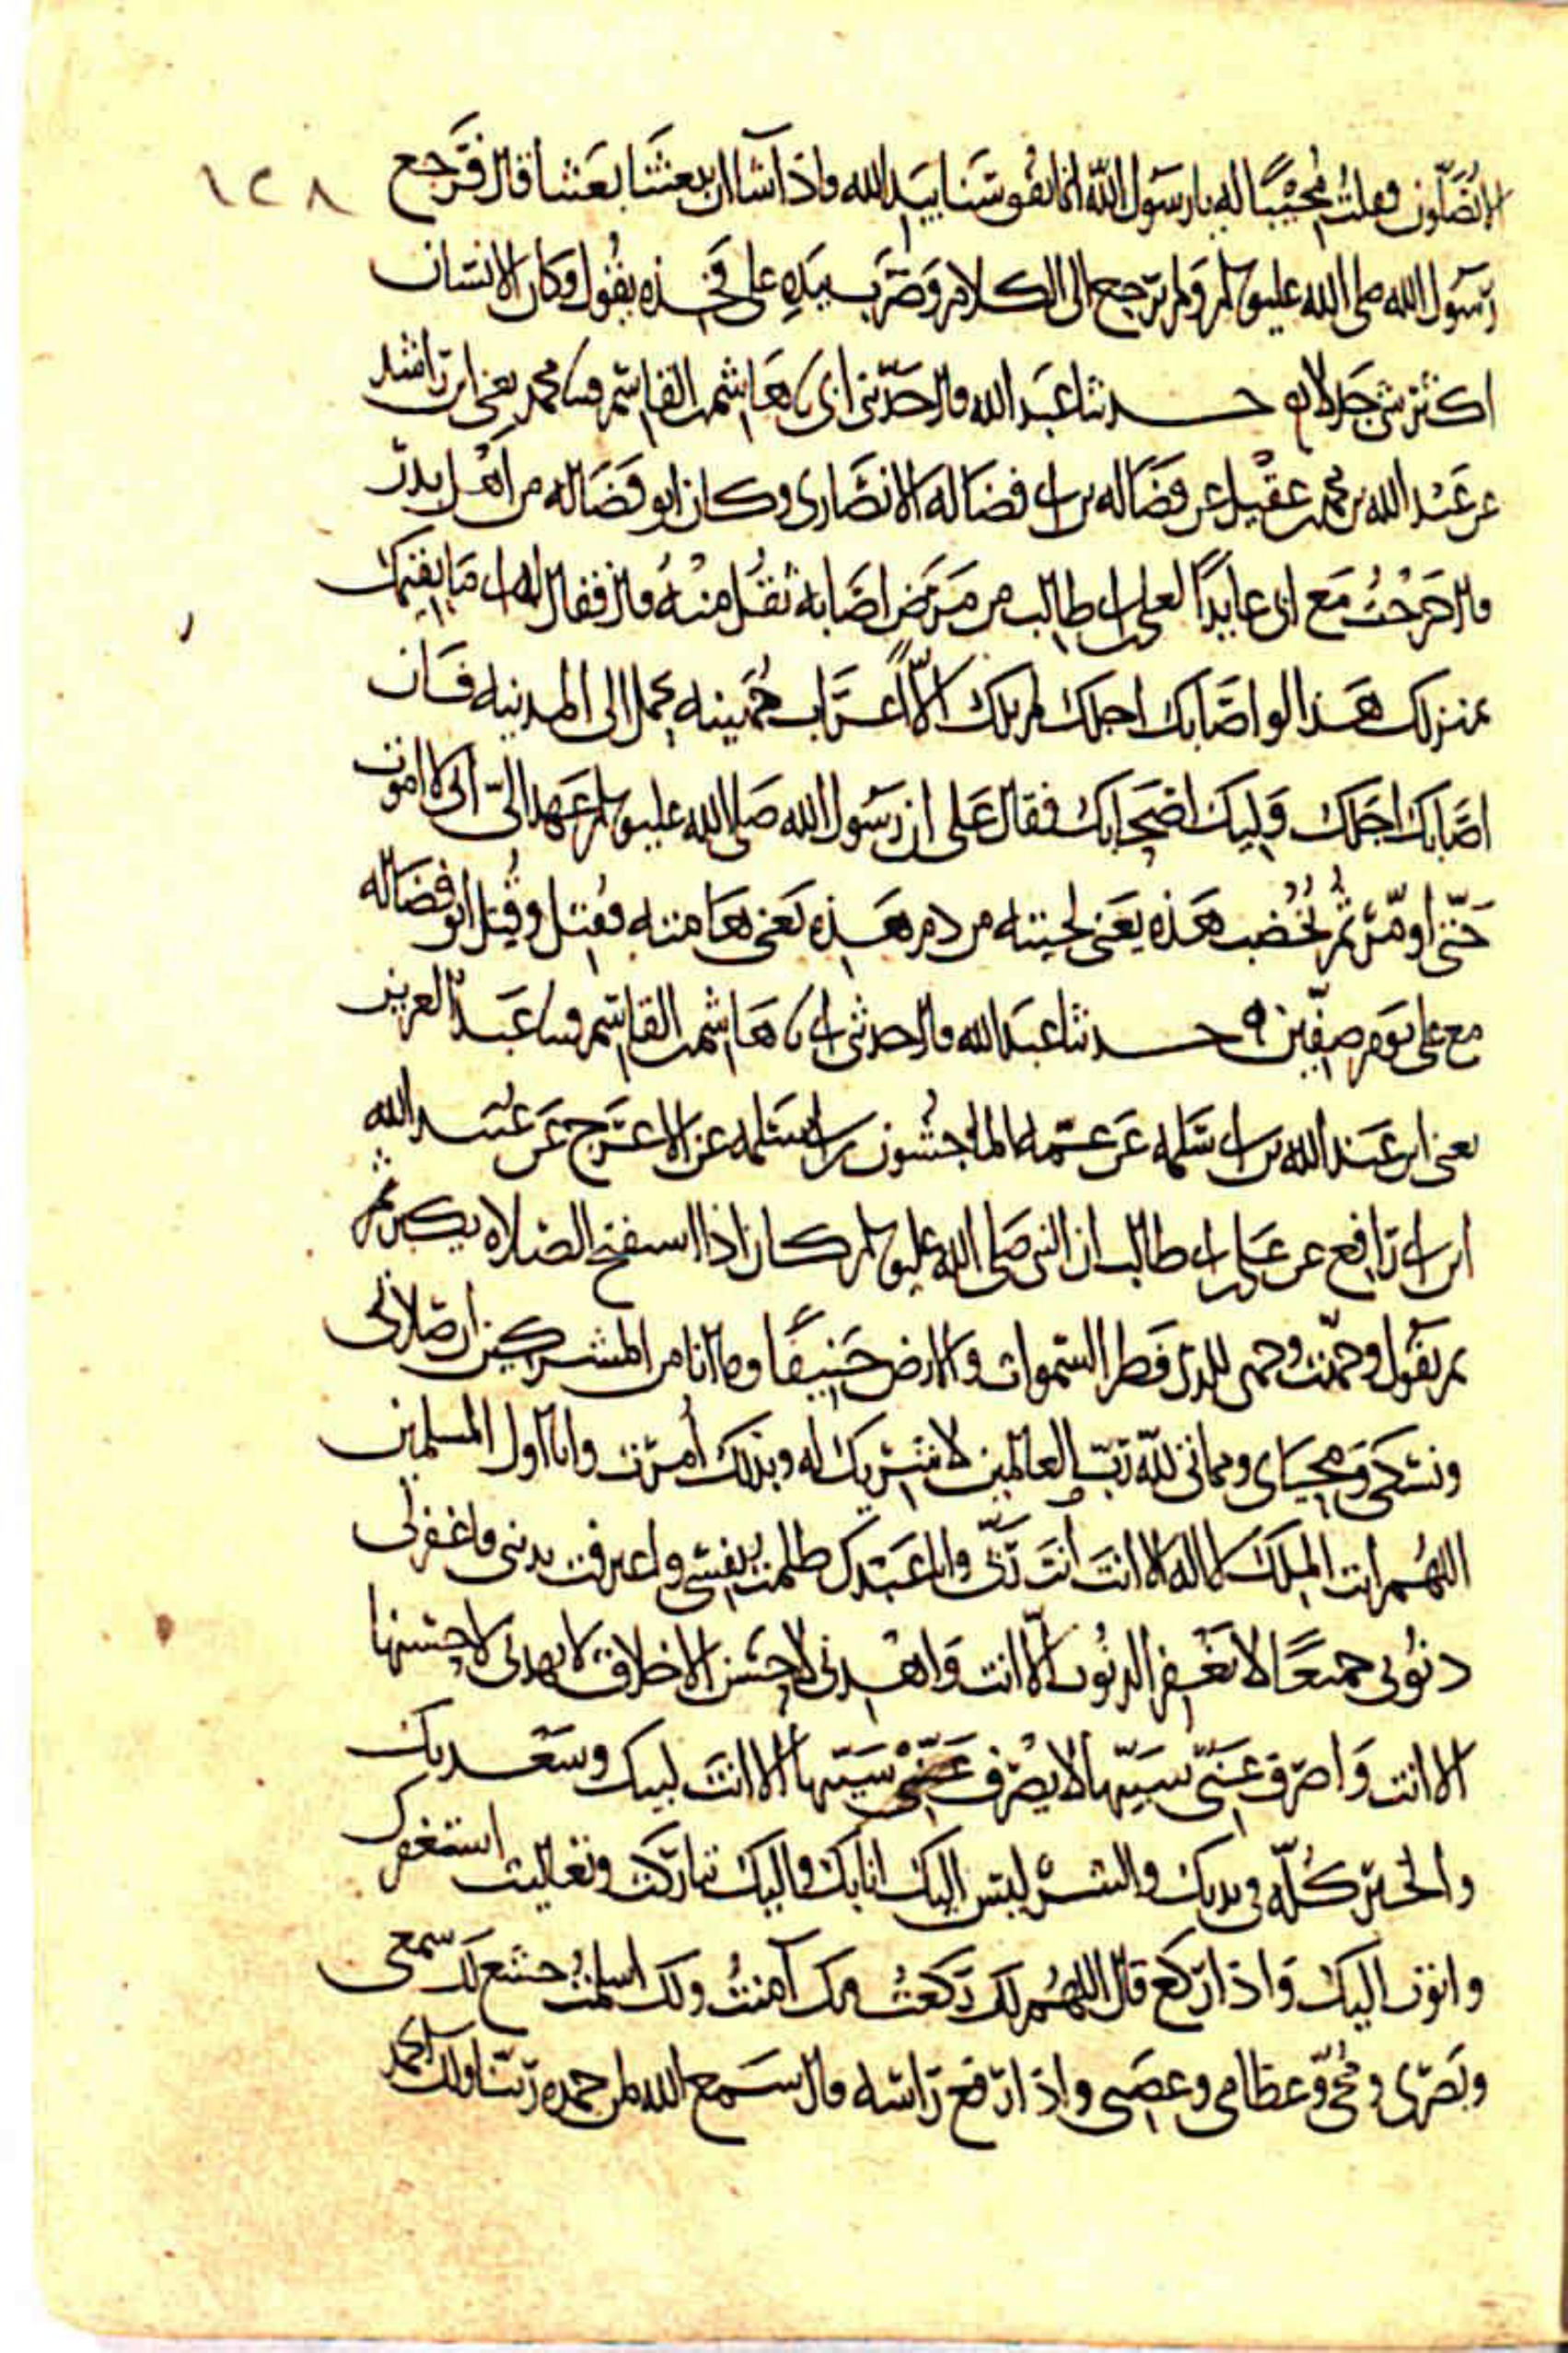 ١٢٨
الا تصلون فقلت مجيبا له يا رسول الله انما نفوسنا بيد الله واذا شا ان يبعثنا بعثنا قال فرجع
رسول الله صلى الله عليه وسلم ولم يرجع الى الكلام وضرب بيده على فخذه يقول وكان الانسان
اكثر شى جدلا حدثنا عبد الله قال حدثنى ابى نا هاشم بن القاسم ومحمد يعنى ابن راشد
عن عبد الله بن محمد بن عقيل عن فضاله بن ابى فضاله الانصارى وكان ابو فضاله من اهل بدر
قال خرجت مع ابى عايدا لعلى بن ابى طالب من مرض اصابه ثقل منه قال فقال له ابى ما يقيمك
بمنزلك هذا لو اصابك اجلك لم يلك الا اعراب جهينه تحمل الى المدينه فان
اصابك اجلك وليك اصحابك فقال على ان رسول الله صلى الله عليه وسلم عهد الى انى لا اموت
حتى اومر ثم تخضب هذه يعنى لحيته من دم هذه يعنى هامته فقتل وقتل ابو فضاله
مع على يوم صفين حدثنا عبد الله قال حدثنى ابى نا هاشم بن القاسم وسا عبد العزيز
يعنى ابن عبد الله بن ابى سلمه عن عمه الماجشون بن ابى سلمه عن الاعرج عن عبيد الله
ابن ابى رافع عن على بن ابى طالب ان النبى صلى الله عليه وسلم كان اذا استفتح الصلاه يكبر ثم
ثم يقول وجهت وجهى للذى فطر السموات والارض حنيفا وما انا من المشركين ان صلاتى
ونسكى ومحياى ومماتى لله رب العالمين لا شريك له وبذلك امرت وانا اول المسلمين
اللهم انت الملك لا اله الا انت انت ربى وانا عبدك ظلمت نفسى واعترفت بذنبى فاغفر لى
ذنوبى جميعا لا يغفر الذنوب الا انت واهدنى لاحسن الاخلاق لا يهدى لاحسنها
الا انت واصرف عنى سيئها لا يصرف عنى سيئها الا انت لبيك وسعديك
والخير كله فى يديك والشر ليس اليك انا بك واليك تباركت وتعاليت استغفرك
واتوب اليك واذا ركع قال اللهم لك ركعت وبك آمنت ولك اسلمت خشع لك سمعى
وبصرى ومخى وعظامى وعصبى واذا رفع راسه قال سمع الله لمن حمده ربنا ولك الحمد